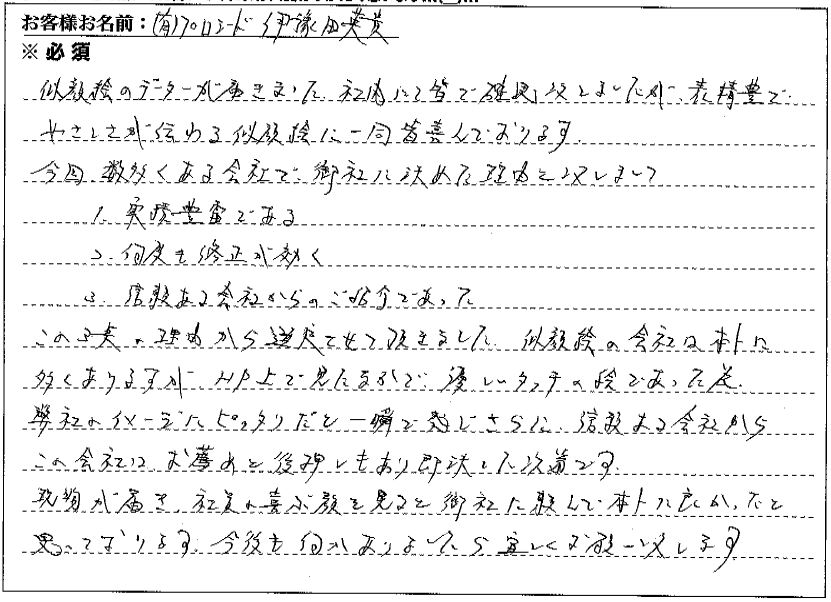 お客様お名前：(有)プロロード 伊豫田英貴
※必須
似顔絵のデーターが届きました。社内にて皆で確認致しましたが、表情豊で
やさしさが伝わる似顔絵に一同皆喜んでおります。
今回、数多くある会社で、御社に決めた理由と致しまして
1. 実績豊富である
2. 何度も修正が効く
3. 信頼ある会社からのご紹介であった
この3点の理由から選定させて頂きました。似顔絵の会社は本トに
多くありますが、HP上で見たなかで、優しいタッチの絵であった点、
弊社のイメージにピッタリだと一瞬で感じさらに、信頼ある会社から
この会社はお薦めと後押しもあり即決した次第です。
現物が届き、社員の喜ぶ顔を見ると御社に頼んで本トに良かったと
思っております。今後も何かありましたら宜しくお願い致します。